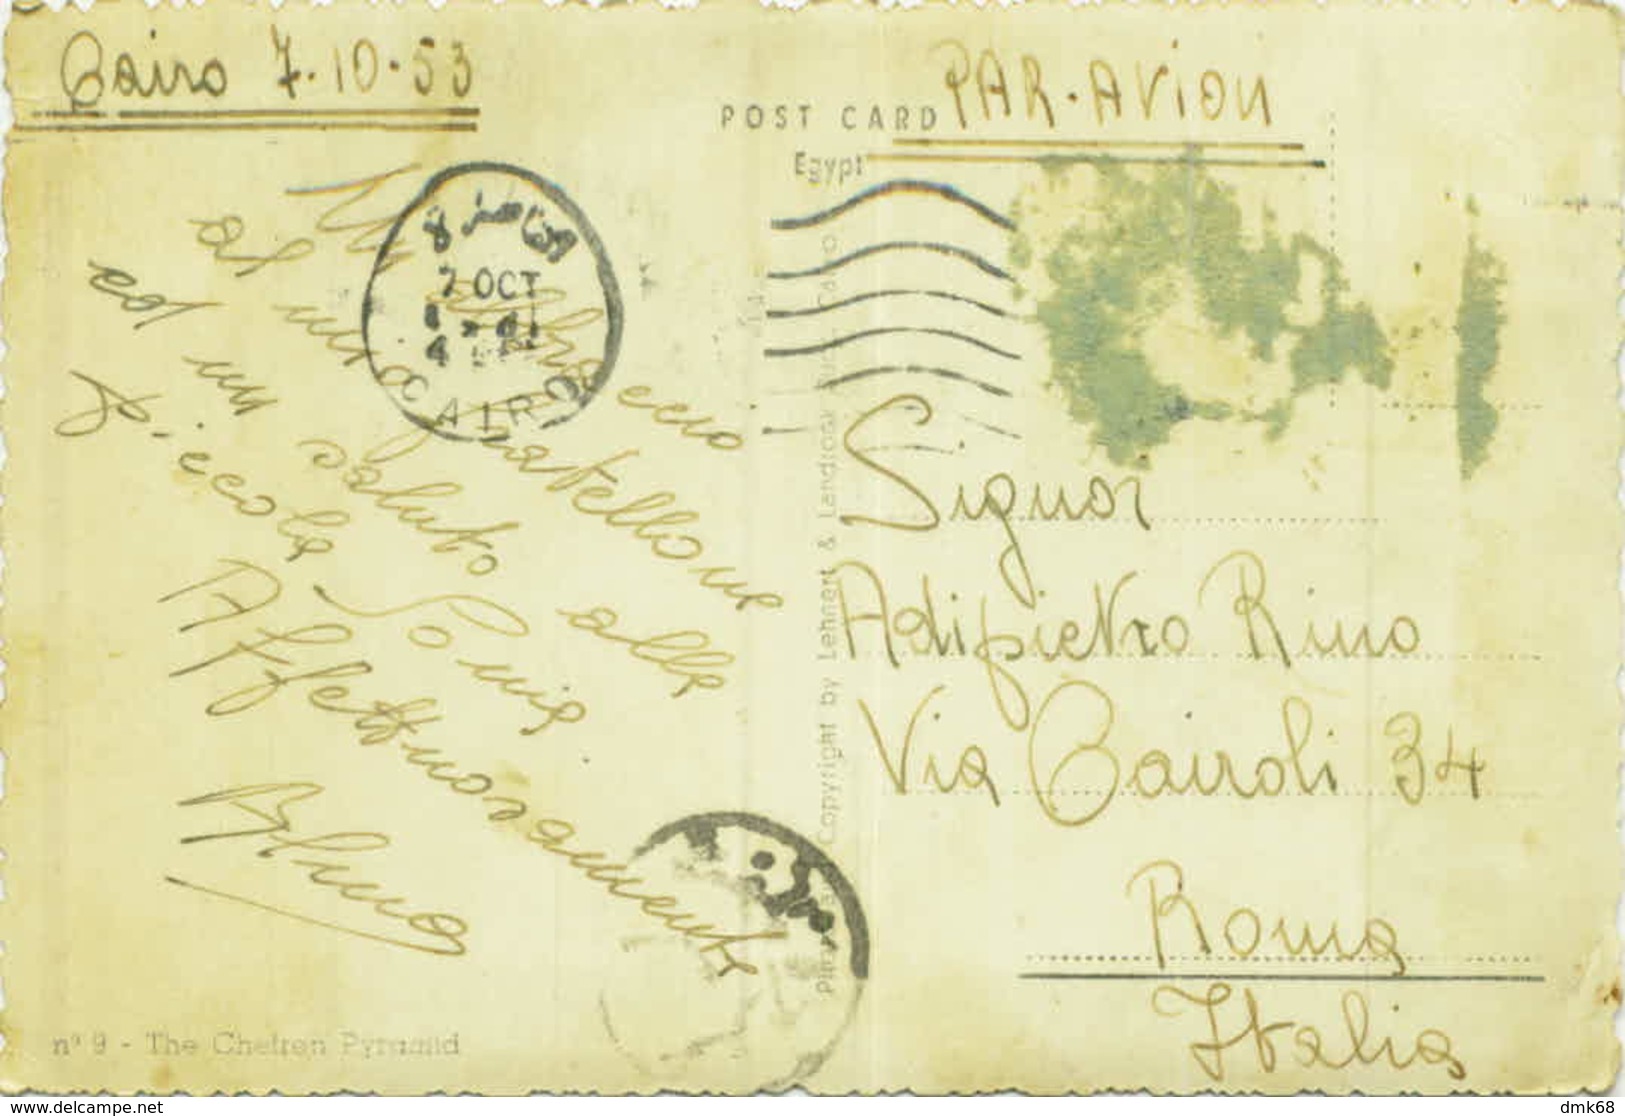 Cairo 7-10-53
POST CARD
PAR-AVION
Egypt
القاهرة 8
7 OCT
CAIRO
Un
ecio
al mio fratellone
ed un saluto alla
piccola Sonia.
Affettuosamente
Signor
Adipietro Rino
Via Cairoli 34
Roma
Italia
Copyright by Lehnert & Landrock
nº 9 - The Chefren Pyramid
https://www.delcampe.net
dmk68